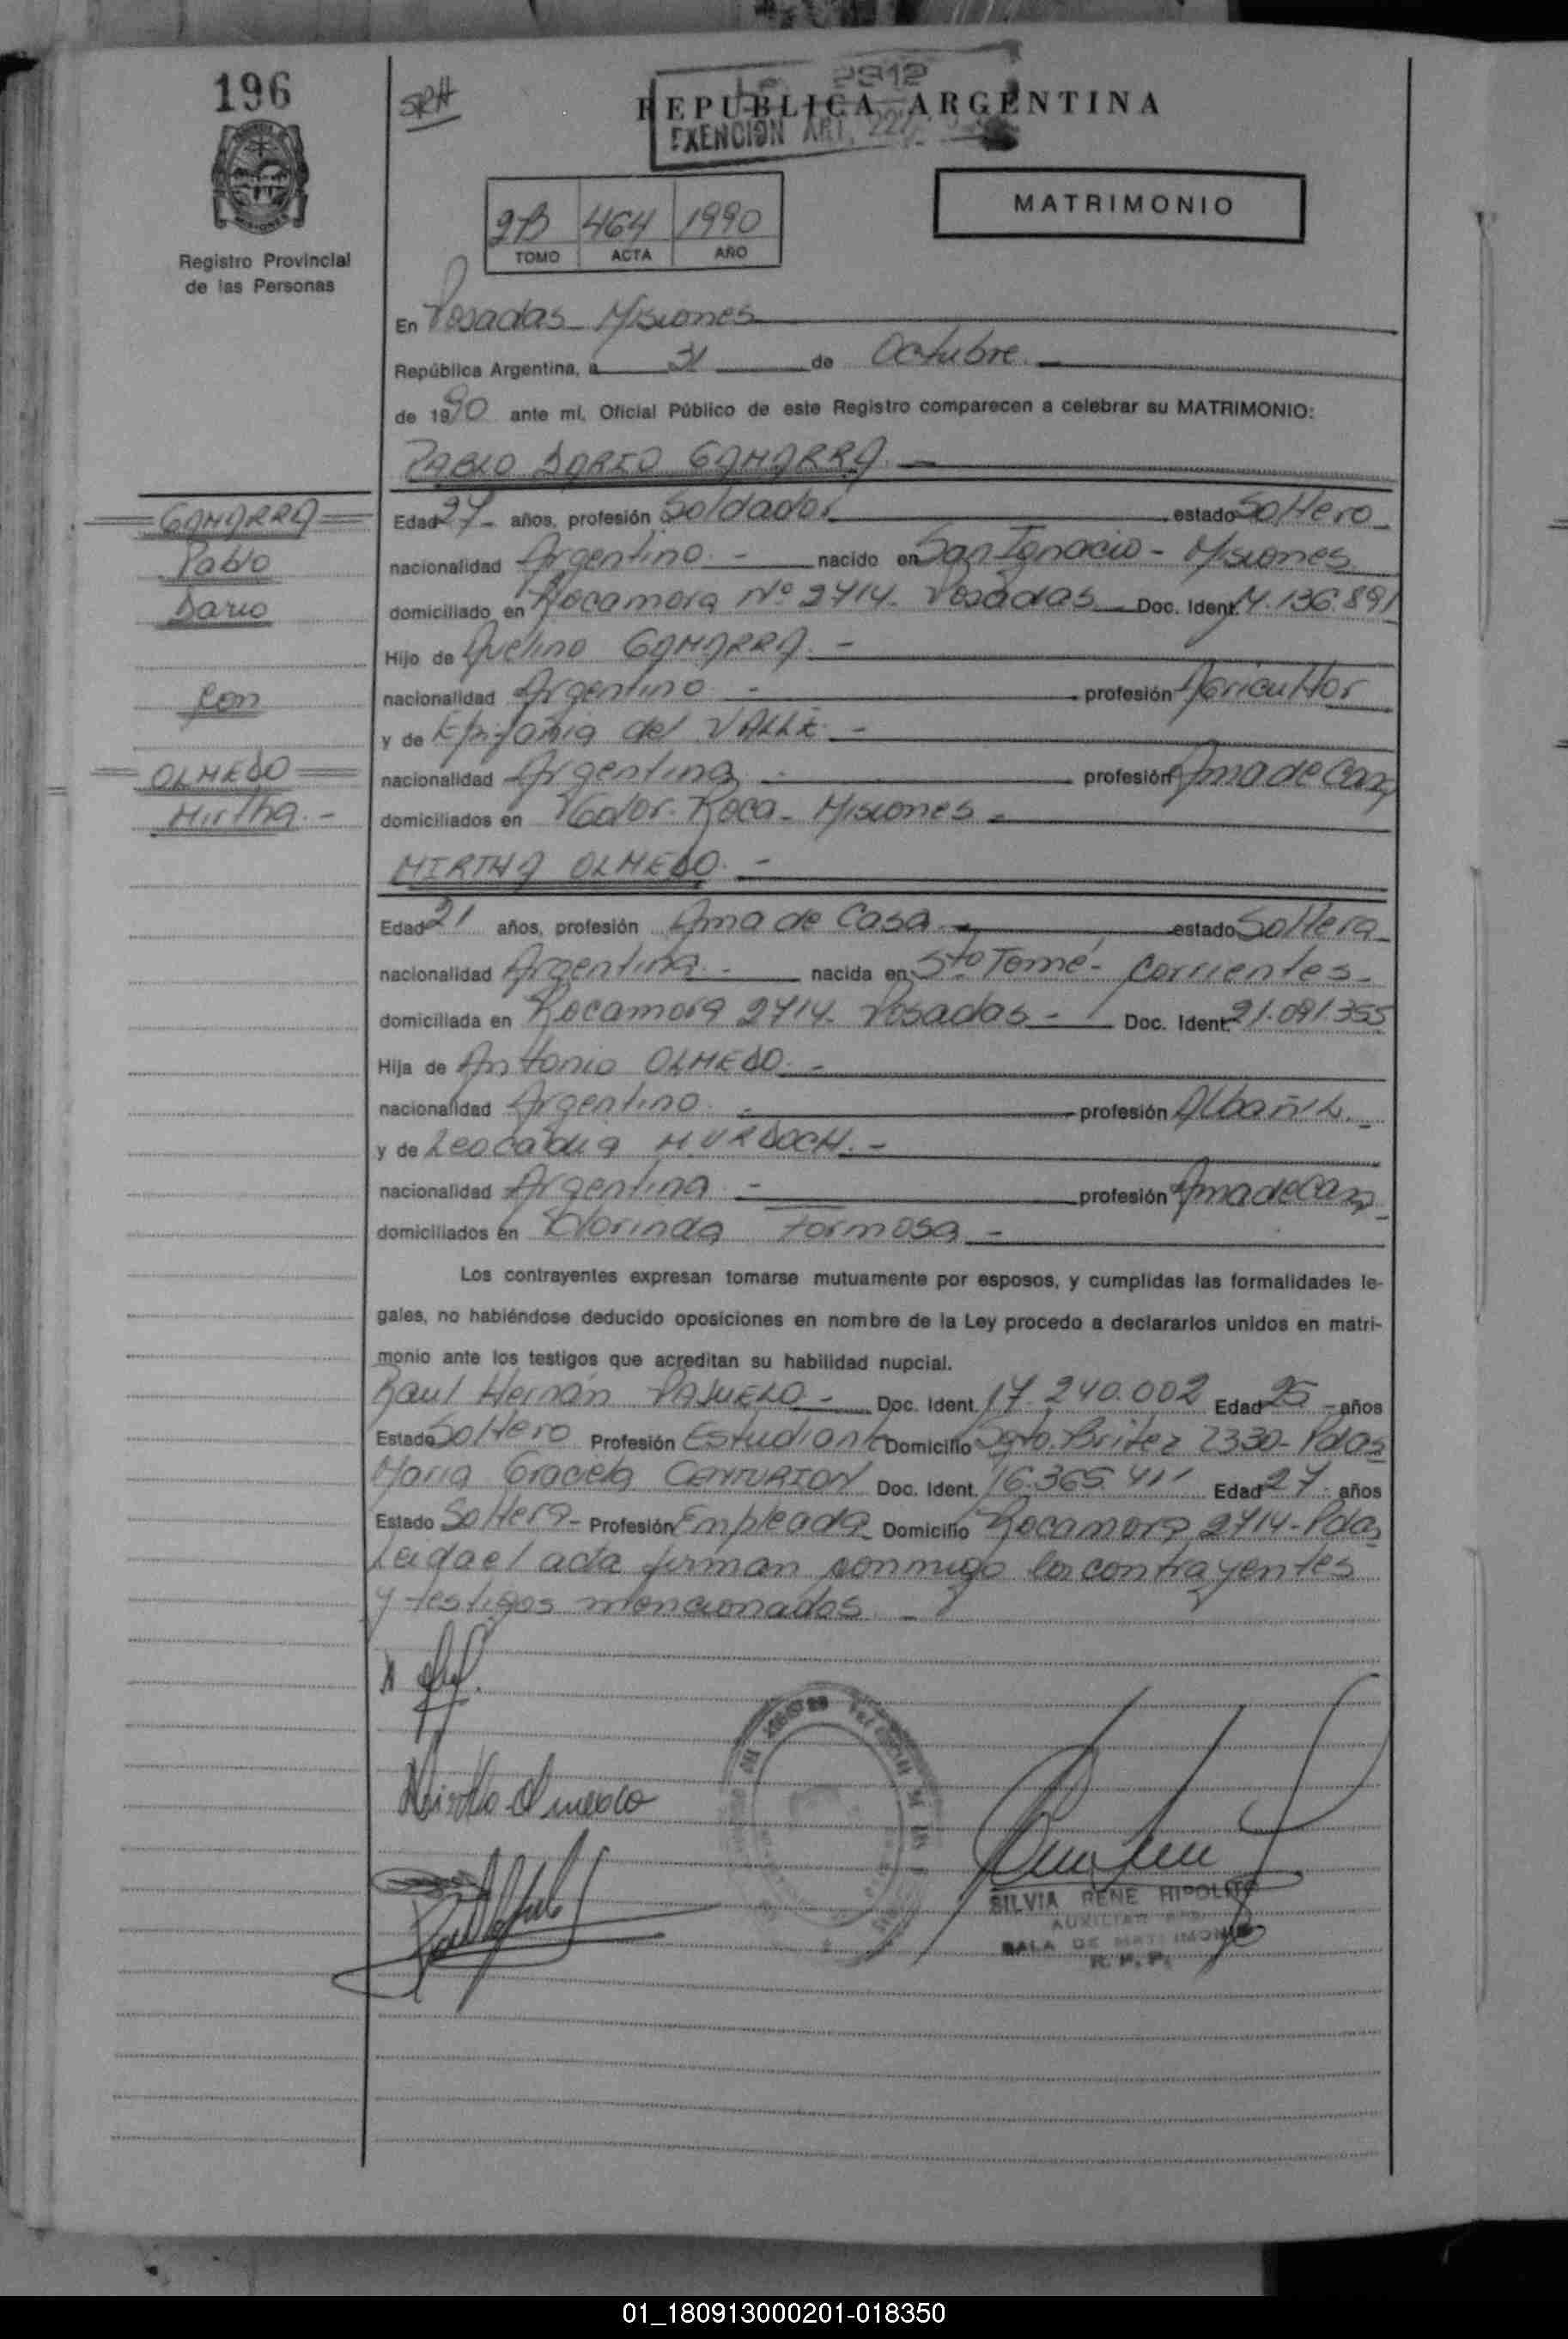 196
SRH
2912
REPUBLICA ARGENTINA
EXENCION ART. 227
2B 464 1990
TOMO ACTA AÑO
MATRIMONIO
Registro Provincial
de las Personas
En Posadas Misiones
República Argentina, a 31 de Octubre
de 1990 ante mí, Oficial Público de este Registro comparecen a celebrar su MATRIMONIO:
PABLO DARIO GAMARRA
GAMARRA
Pablo
Dario
con
OLMEDO
Mirtha
Edad 27 años, profesión Soldador estado Soltero
nacionalidad Argentino nacido en San Ignacio - Misiones
domiciliado en Rocamora Nº 2714 Posadas Doc. Ident. 136.891
Hijo de Avelino GAMARRA
nacionalidad Argentino profesión Agricultor
y de Epifania del VALLE
nacionalidad Argentina profesión Ama de Casa
domiciliados en Roca - Misiones
MIRTHA OLMEDO
Edad 21 años, profesión Ama de Casa estado Soltera
nacionalidad Argentina nacida en Sto Tomé - Corrientes
domiciliada en Rocamora 2714 Posadas Doc. Ident. 21.091.355
Hija de Antonio OLMEDO
nacionalidad Argentino profesión Albañil
y de Leocadia MURDOCH
nacionalidad Argentina profesión Ama de Casa
domiciliados en Clorinda Formosa
Los contrayentes expresan tomarse mutuamente por esposos, y cumplidas las formalidades le-
gales, no habiéndose deducido oposiciones en nombre de la Ley procedo a declararlos unidos en matri-
monio ante los testigos que acreditan su habilidad nupcial.
Raul Hernán Doc. Ident. 17.240.002 Edad 25 años
Estado Soltero Profesión Estudiante Domicilio Sgto. Britez 2330 - Pdas
Maria Graciela CENTURION Doc. Ident. 16.365.411 Edad 27 años
Estado Soltera - Profesión Empleada Domicilio Rocamora 2714 - Pdas
Leida el acta firman conmigo los contrayentes
y testigos mencionados
Mirtha Olmedo
SILVIA RENE HIPOLITO
AUXILIAR
SALA DE MATRIMONIO
R. P. P.
01_180913000201-018350